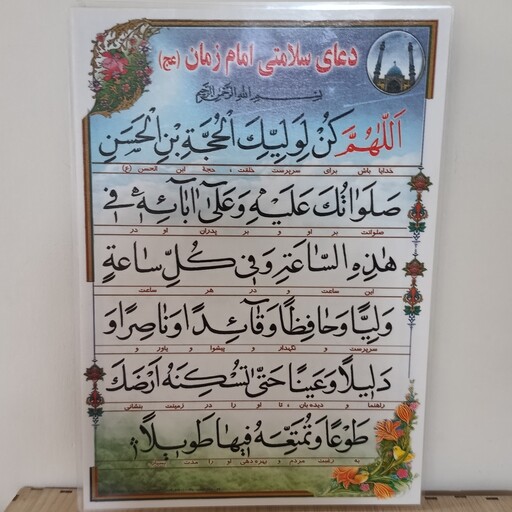 دعای سلامتی امام زمان (عج)
بسم الله الرحمن الرحیم
اَللّٰهُمَّ كُنْ لِوَلِيِّكَ الْحُجَّةِ بْنِ الْحَسَنِ
خدایا باش برای سرپرست خلقت، حجة ابن الحسن (ع)
صَلَواتُكَ عَلَيْهِ وَعَلىٰ اٰبآئِهِ في
صلواتت بر او و بر پدران او در
هٰذِهِ السّاعَةِ وَفي كُلِّ ساعَةٍ
این ساعت و در هر ساعت
وَلِيًّا وَحافِظًا وَقآئِدًا وَناصِرًا وَ
سرپرست و نگهدار و پیشوا و یاور و
دَليلاً وَعَيْنًا حَتّىٰ تُسْكِنَهُ اَرْضَكَ
راهنما و دیده بان، تا او را در زمینت بنشانی
طَوْعًا وَتُمَتِّعَهُ فيها طَويلاً
به رغبت مردم و بهره دهی او را مدت